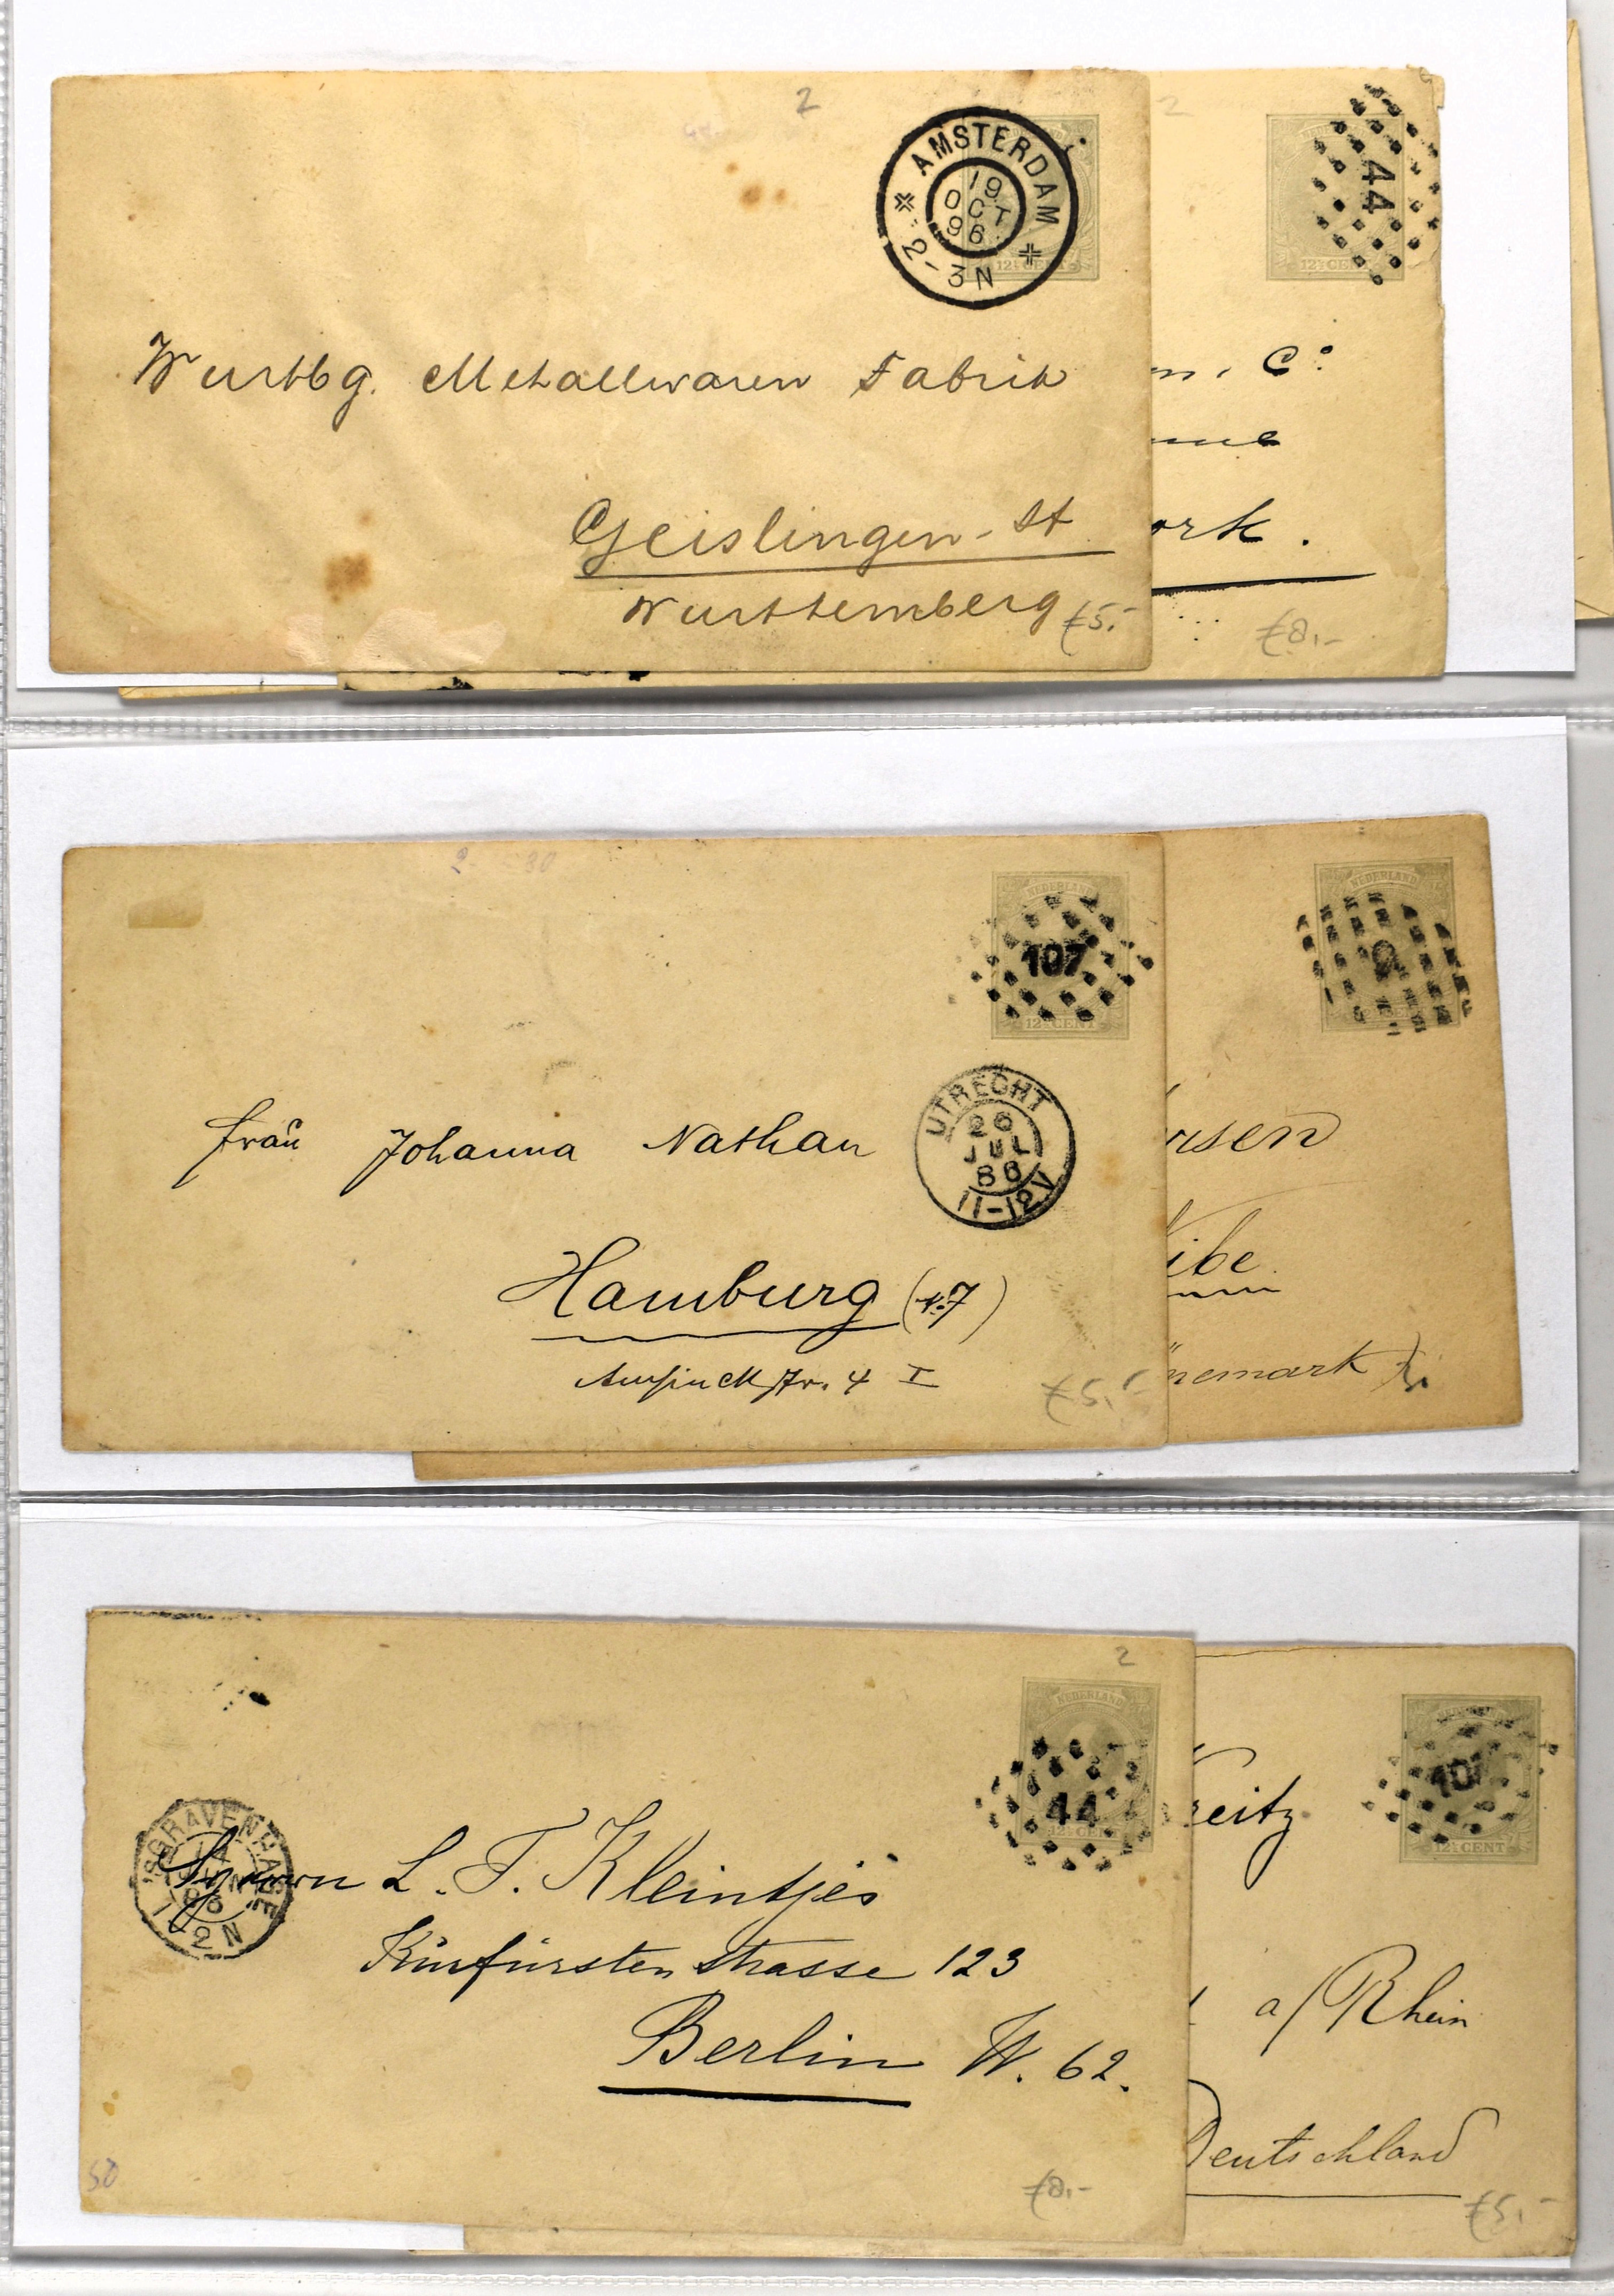 2
AMSTERDAM
19
OCT
96
2-3N
12½ CENT
Wurtbg. Metallwaren Fabrik
Geislingen-St
Wurttemberg
€5.-
2
44
12½ CEN
n. Co
ork.
€8.-
2 30
NEDERLAND
107
12½ CENT
UTRECHT
26
JUL
88
11-12V
Frau Johanna Nathan
Hamburg (N.7)
4 I
€5.-
NEDERLAND
rsen
ibe
nemark
2
NEDERLAND
44
12½ CENT
'SGRAVENHAGE
1-2N
L. F. Kleintjes
Kurfürstenstrasse 123
Berlin W. 62.
50
€8.-
107
12½ CENT
reitz
a/Rhein
Deutschland
€5.-